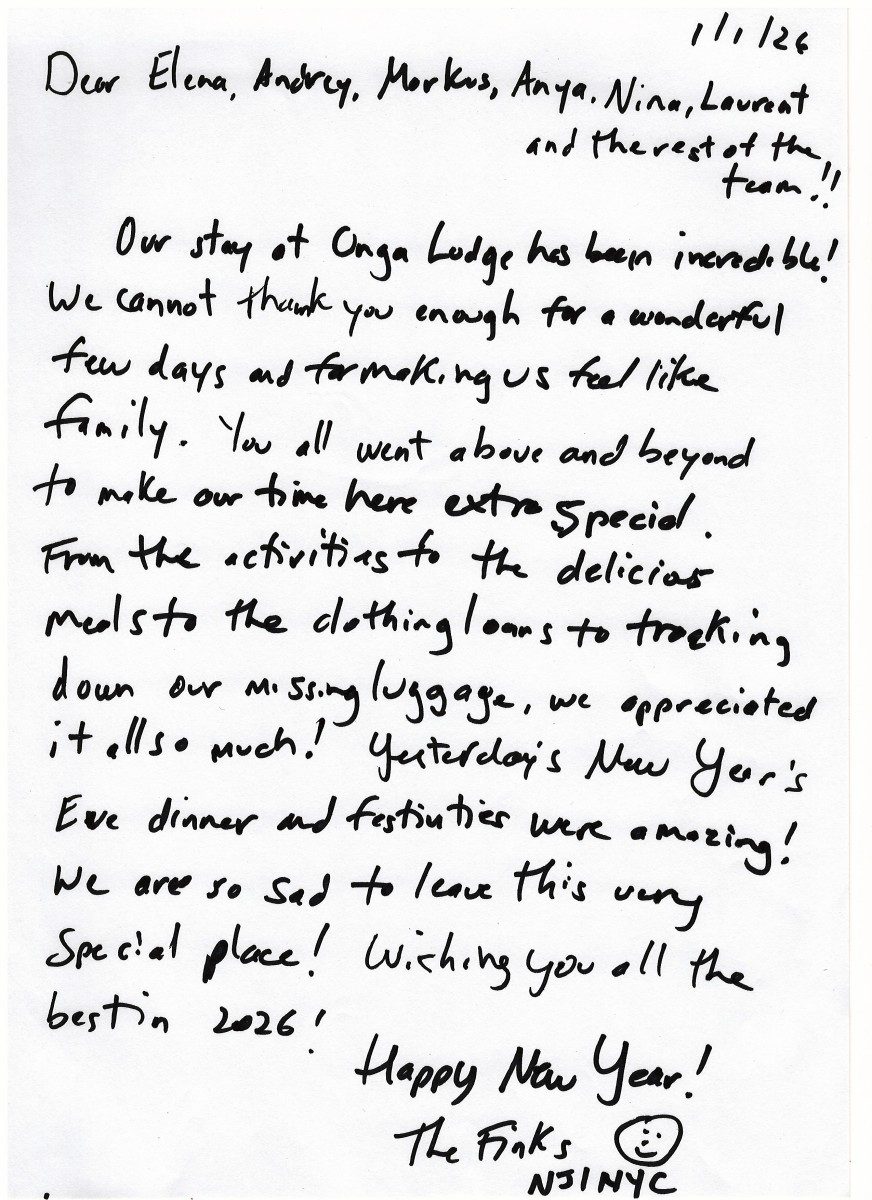 1/1/26
Dear Elena, Andrey, Markus, Anya, Nina, Laurent
and the rest of the
team!!
Our stay at Onga Lodge has been incredible!
We cannot thank you enough for a wonderful
few days and for making us feel like
family. You all went above and beyond
to make our time here extra special.
From the activities to the delicious
meals to the clothing loans to tracking
down our missing luggage, we appreciated
it all so much! Yesterday's New Year's
Eve dinner and festivities were amazing!
We are so sad to leave this very
special place! Wishing you all the
best in 2026!
Happy New Year!
The Finks
NJ/NYC